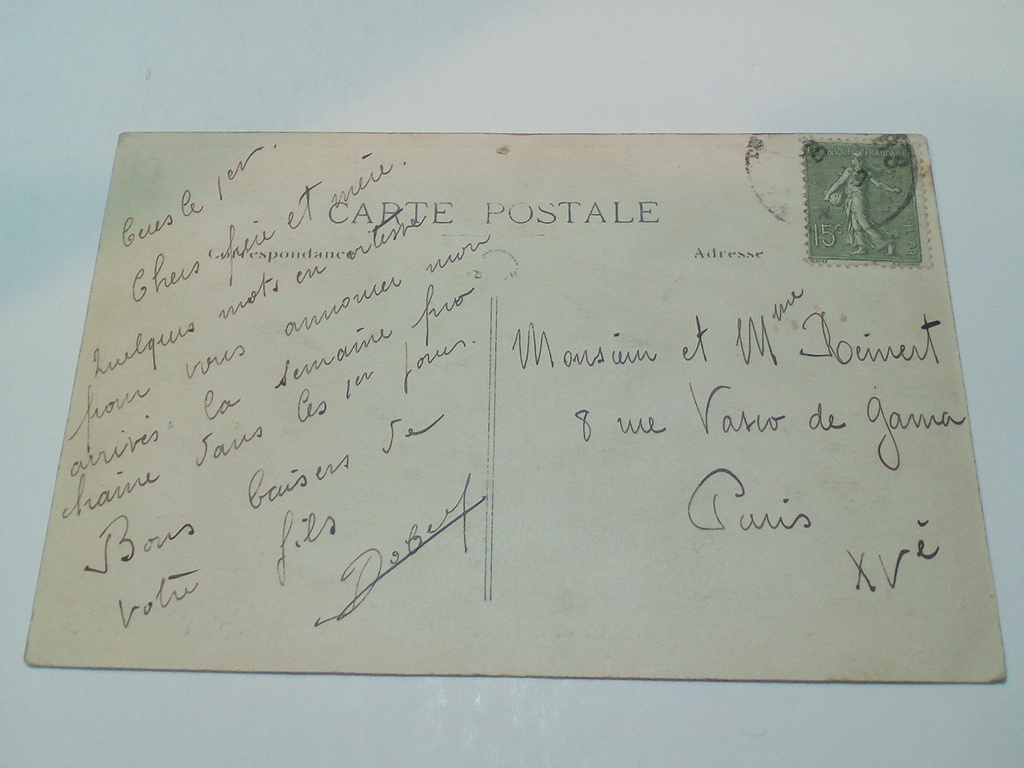 CARTE POSTALE
Correspondance
Adresse
15c
le 1er.
Chers père et mère.
Quelques mots en vitesse
pour vous annoncer mon
arrivés la semaine pro
chaine dans les 1er jours.
Bons baisers de
votre fils
Robert
Monsieur et Mme Reinert
8 rue Vasco de Gama
Paris
XVè